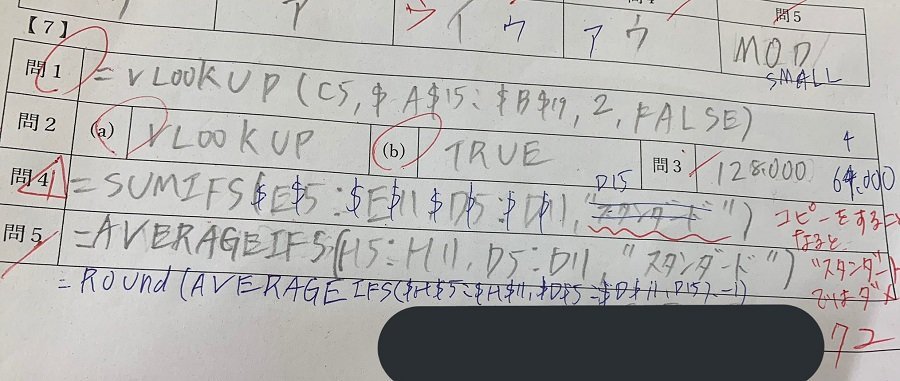 【7】
ア
ウ イ ウ
ア ウ
問5
MOD
SMALL
問1 =VLOOKUP(C5,$A$15:$B$19,2,FALSE)
問2 (a) VLOOKUP (b) TRUE 問3 128.000
4
64.000
問4 =SUMIFS($E$5:$E$11 $D$5:$D$11,"スタンダード")
D15
コピーをすること
なると
"スタンダード
ではダメ
問5 =AVERAGEIFS(H5:H11,D5:D11,"スタンダード")
=Round(AVERAGEIFS($H$5:$H$11,$D$5:$D$11,D15),-1)
72